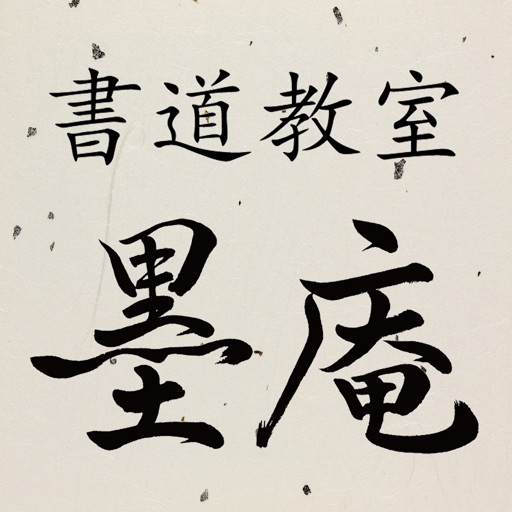 書道教室
墨庵